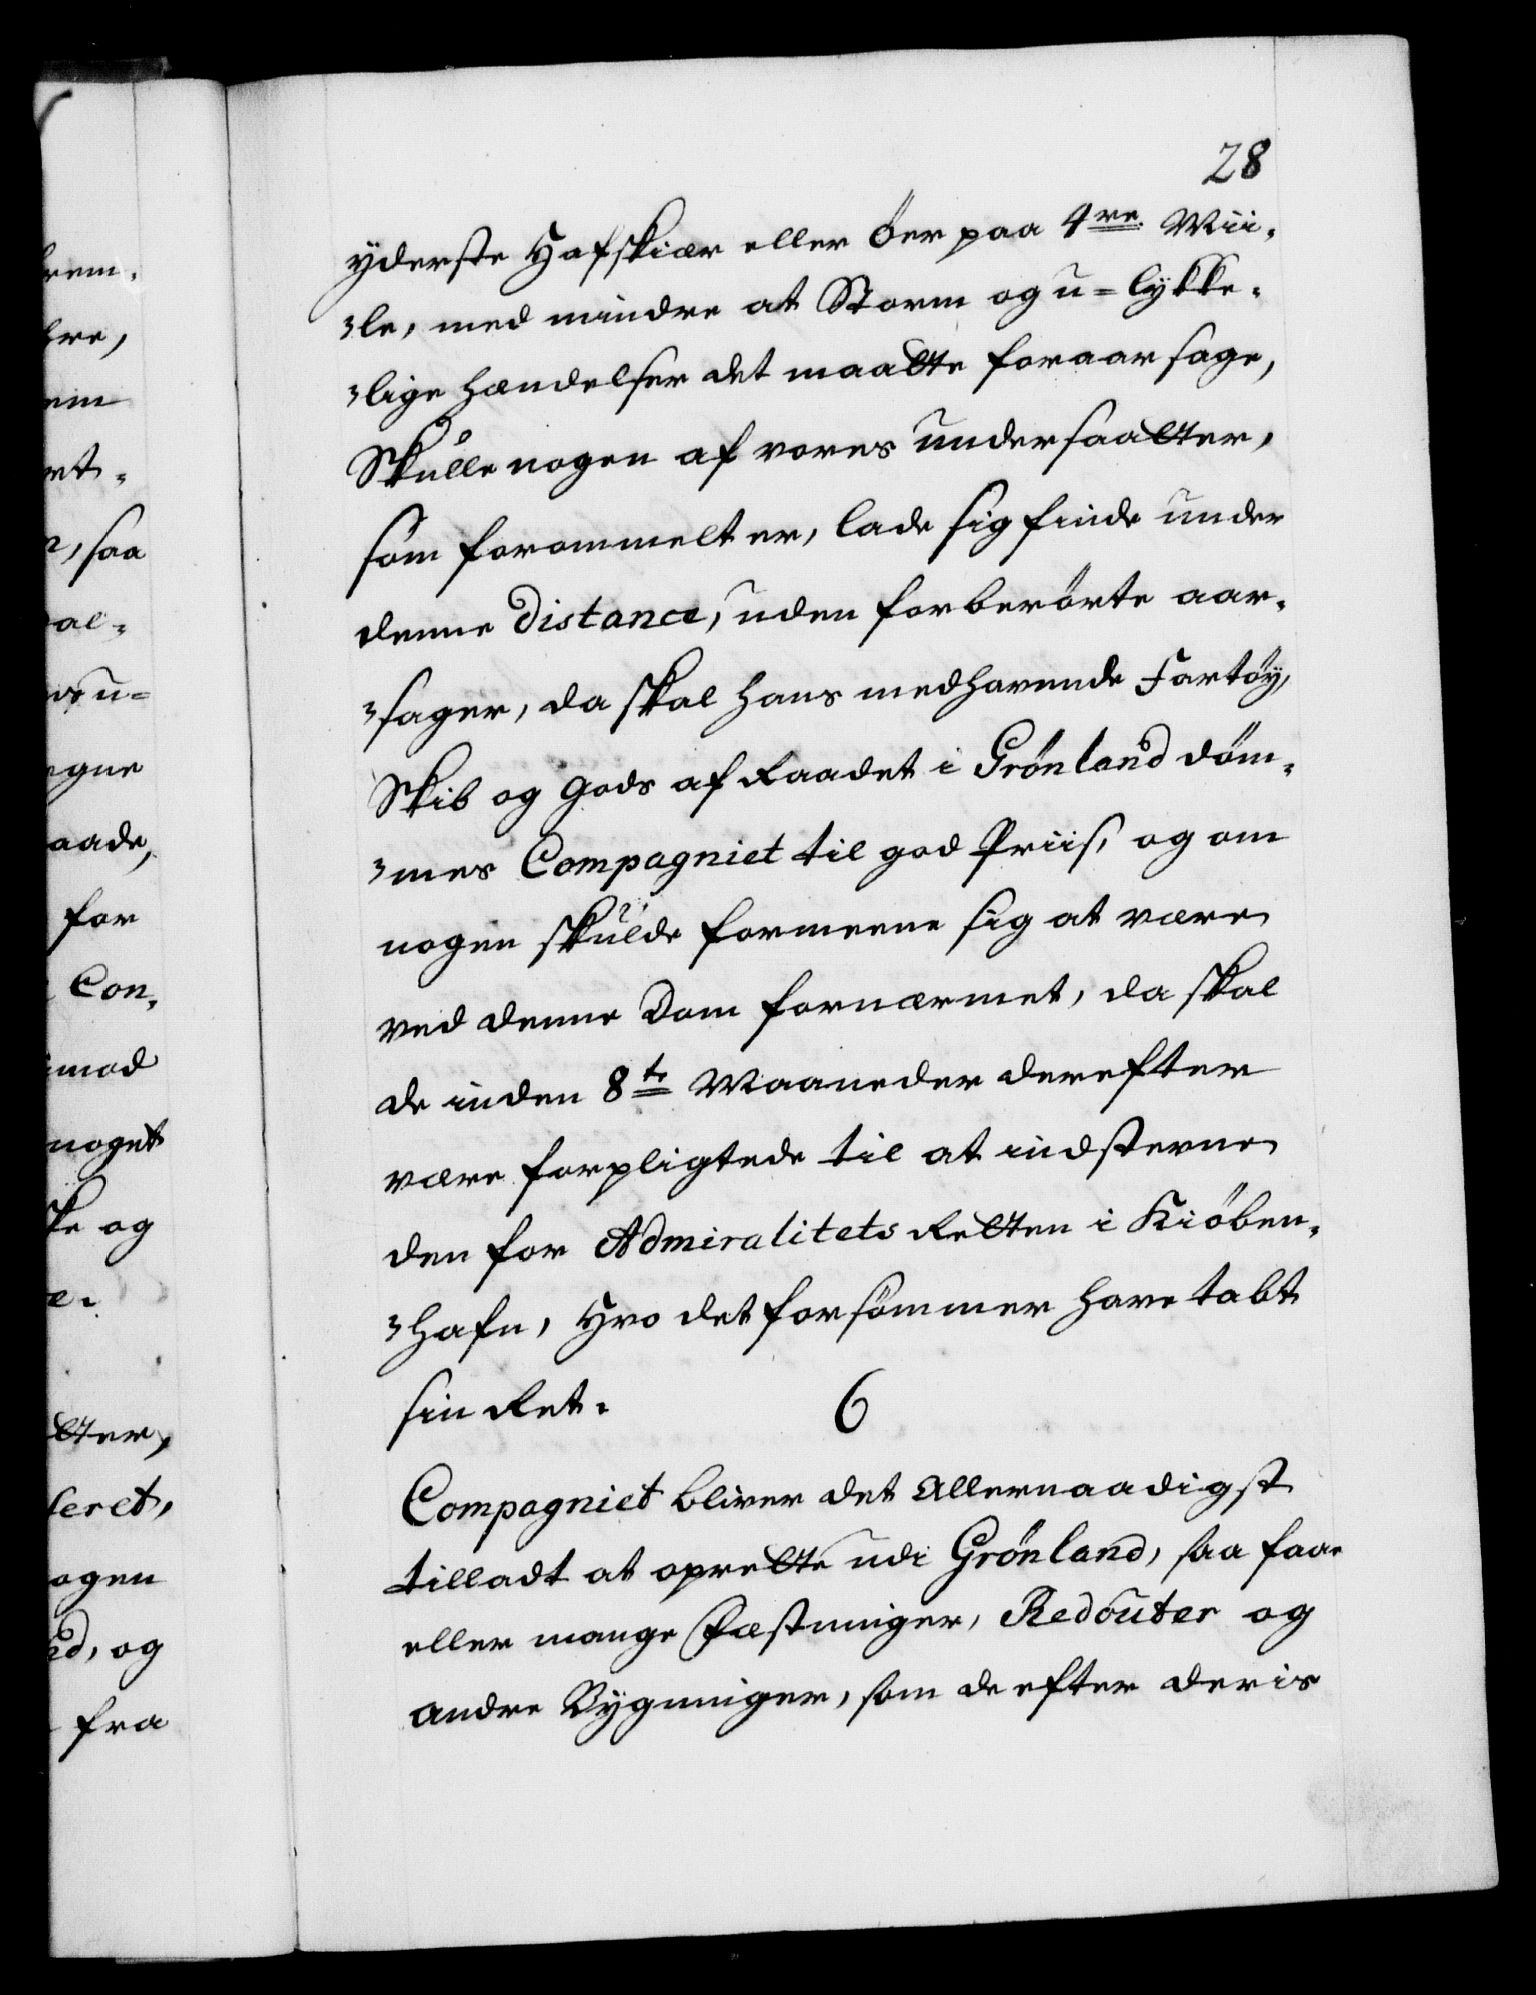 28
yderste Hafskiær eller öer paa 4re Mii-
-le, med mindre at Storm og u=lykke-
-lige hændelser det maatte foraarsage,
Skulle nogen af vores undersaatter,
som forommelt er, lade sig finde under
denne distance, uden forberörte aar-
-sager, da skal hans medhavende Fartöy,
Skib og Gods af Raadet i Grönland döm-
-mes Compagniet til god Priis, og om
nogen skulde formeene sig at være
ved denne Dom fornærmet, da skal
de inden 8te Maaneder derefter
være forpligtede til at indstevne
den for Admiralitets Retten i Kiöben-
-hafn, Hvo det forsömmer have tabt
sin Ret.
6
Compagniet bliver det Allernaadigst
tilladt at oprette udi Grönland, saa faa
eller mange Fæstninger, Redouter og
andre Bygninger, som de efter deris